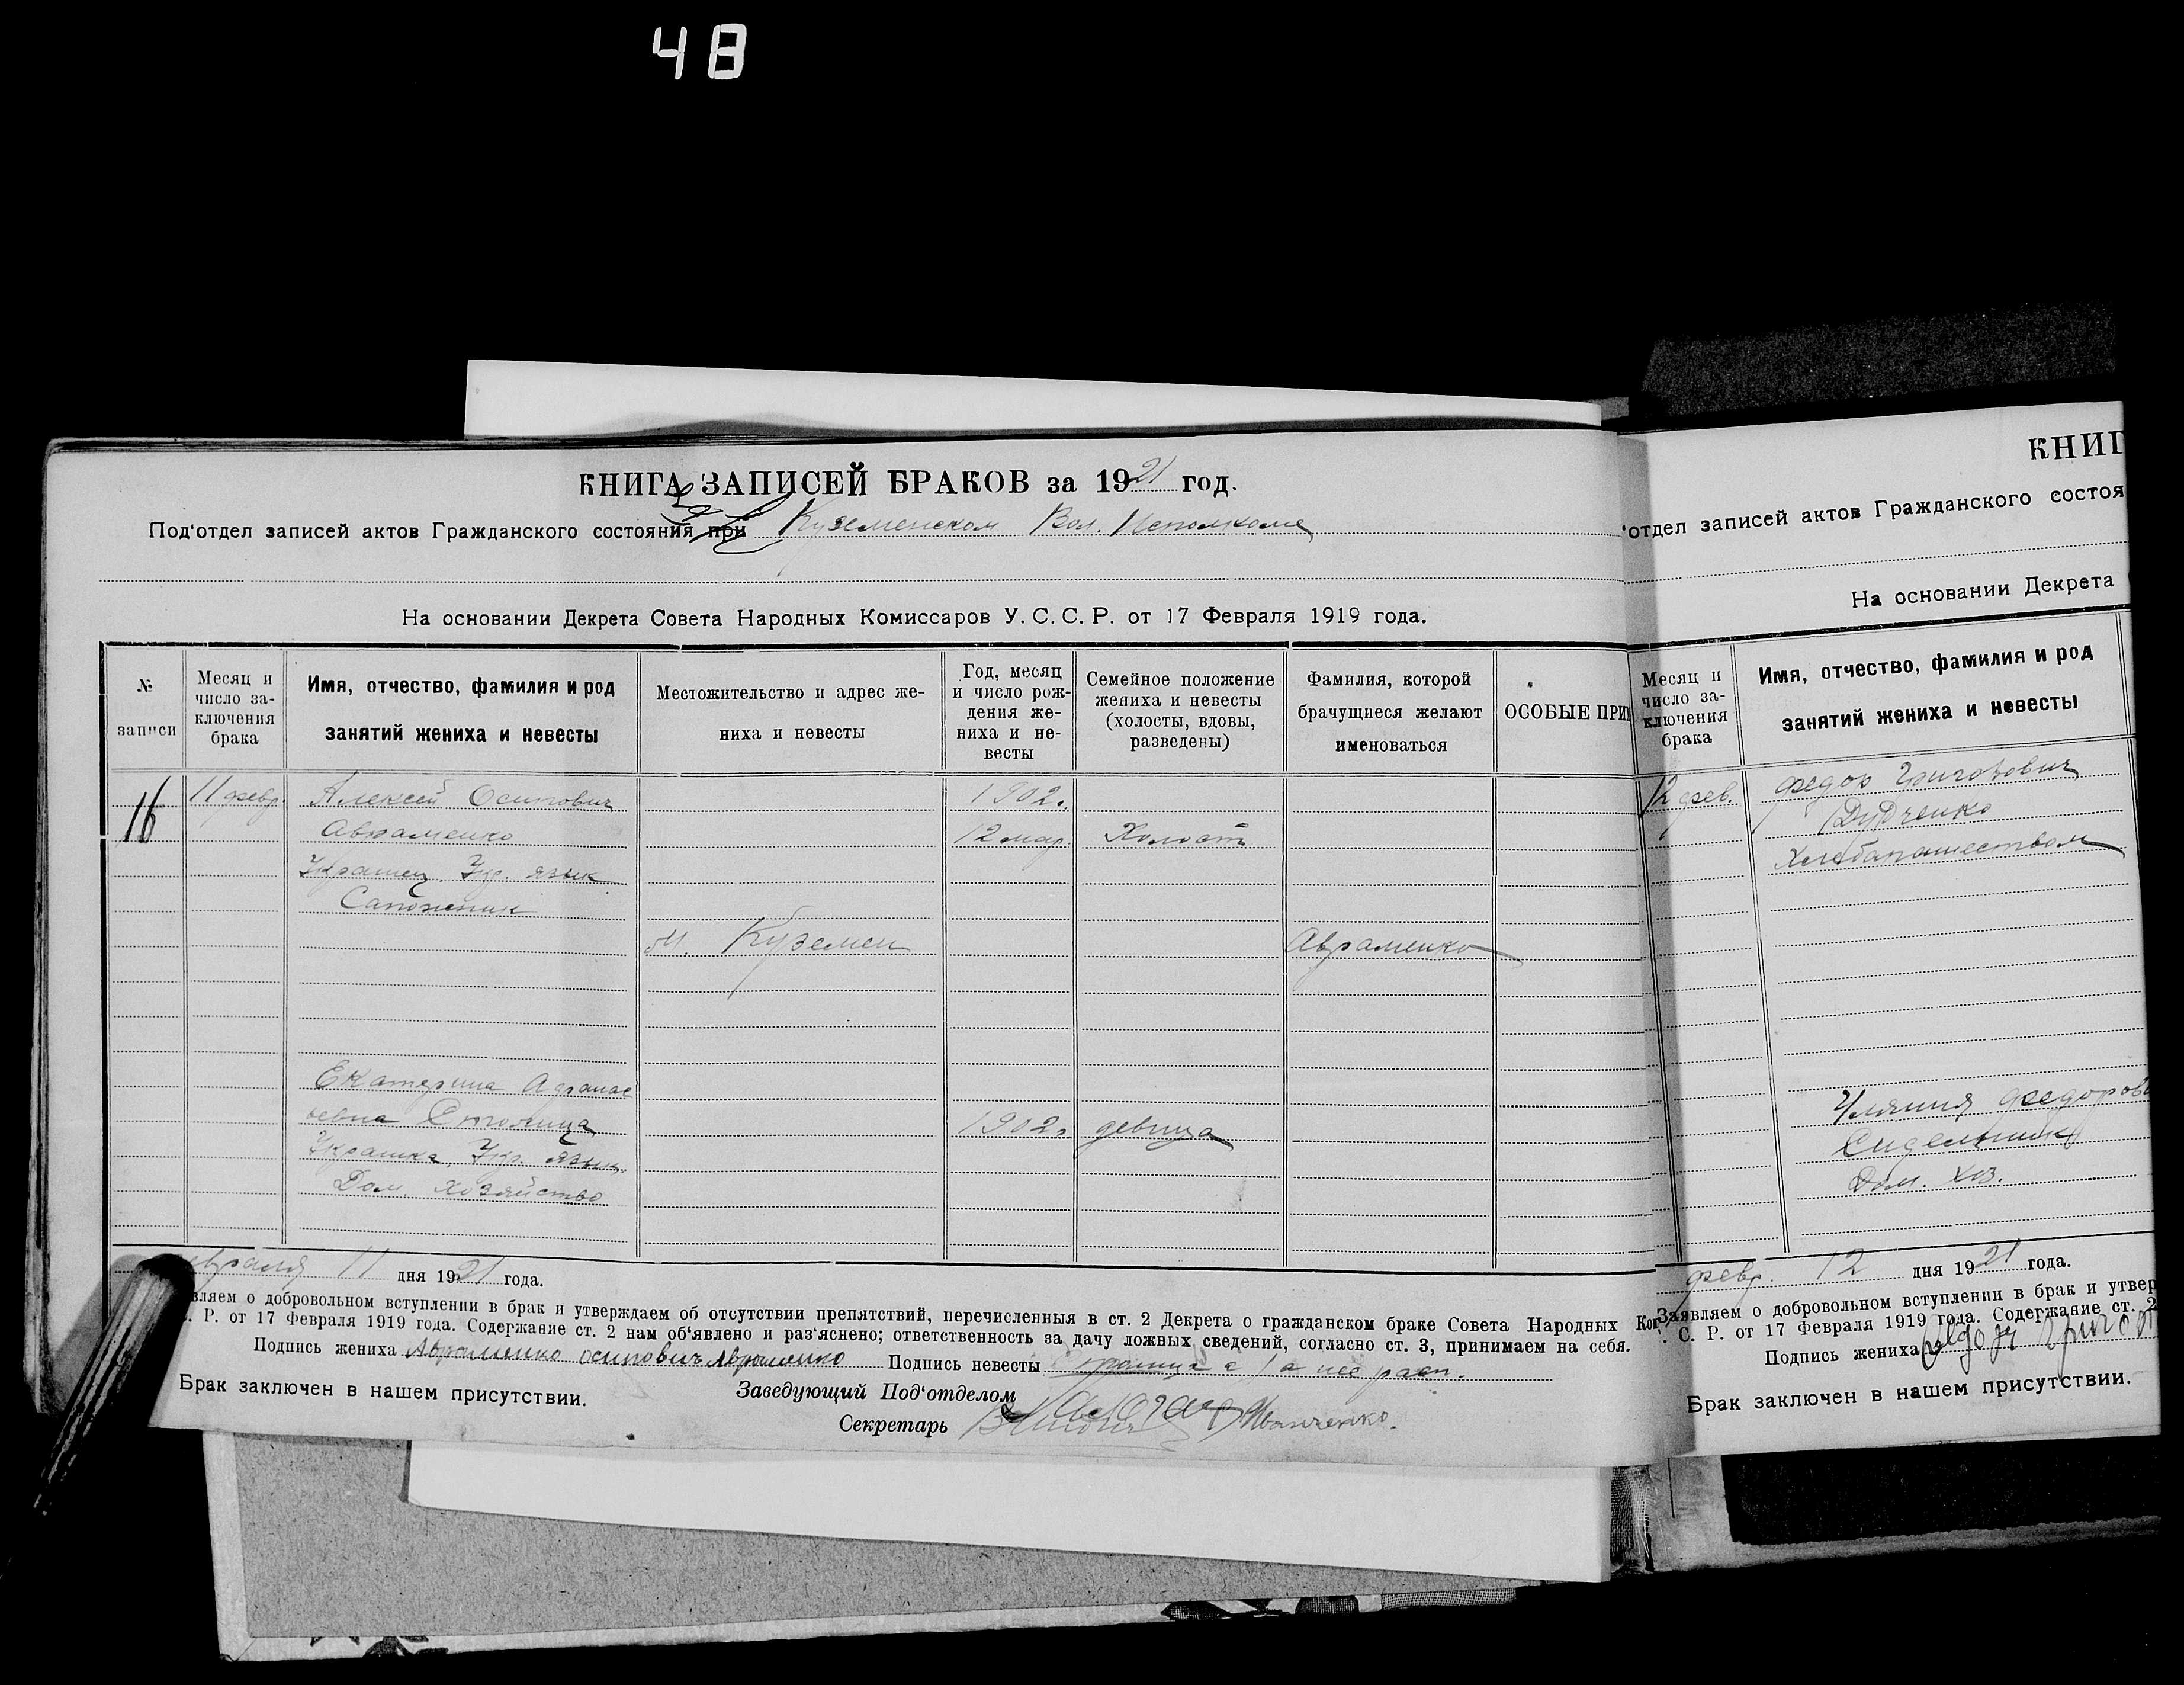 48
КНИГА ЗАПИСЕЙ БРАКОВ за 1921 год.
Под'отдел записей актов Гражданского состояния при Куземенском Вол. Исполкоме
На основании Декрета Совета Народных Комиссаров У. С. С. Р. от 17 Февраля 1919 года.
№ записи
Месяц и число заключения брака
Имя, отчество, фамилия и род занятий жениха и невесты
Местожительство и адрес жениха и невесты
Год, месяц и число рождения жениха и невесты
Семейное положение жениха и невесты (холосты, вдовы, разведены)
Фамилия, которой брачущиеся желают именоваться
ОСОБЫЕ ПРИ
16 11 февр. Алексей Осипович 1902.
Авраменко 12 мар. Холост
Украинец Укр. язык
Сапожник
м. Куземен Авраменко
Екатерина Афанас
ьевна 1902. девица
Укр. язык.
Дом. хозяйство
евраля 11 дня 1921 года.
вляем о добровольном вступлении в брак и утверждаем об отсутствии препятствий, перечисленныя в ст. 2 Декрета о гражданском браке Совета Народных Ком
. Р. от 17 Февраля 1919 года. Содержание ст. 2 нам об'явлено и раз'яснено; ответственность за дачу ложных сведений, согласно ст. 3, принимаем на себя.
Подпись жениха Авраменко осипович Авраменко Подпись невесты
Брак заключен в нашем присутствии. Заведующий Под'отделом
Секретарь Иванченко.
КНИГ
'отдел записей актов Гражданского состоя
На основании Декрета
Месяц и число заключения брака
Имя, отчество, фамилия и род занятий жениха и невесты
12 фев. Федор Григорович
Дудченко
Хлебопашеством
Федоров
Дом. хоз.
февр. 12 дня 1921 года.
Заявляем о добровольном вступлении в брак и утвер
С. Р. от 17 Февраля 1919 года. Содержание ст. 2
Подпись жениха
Брак заключен в нашем присутствии.